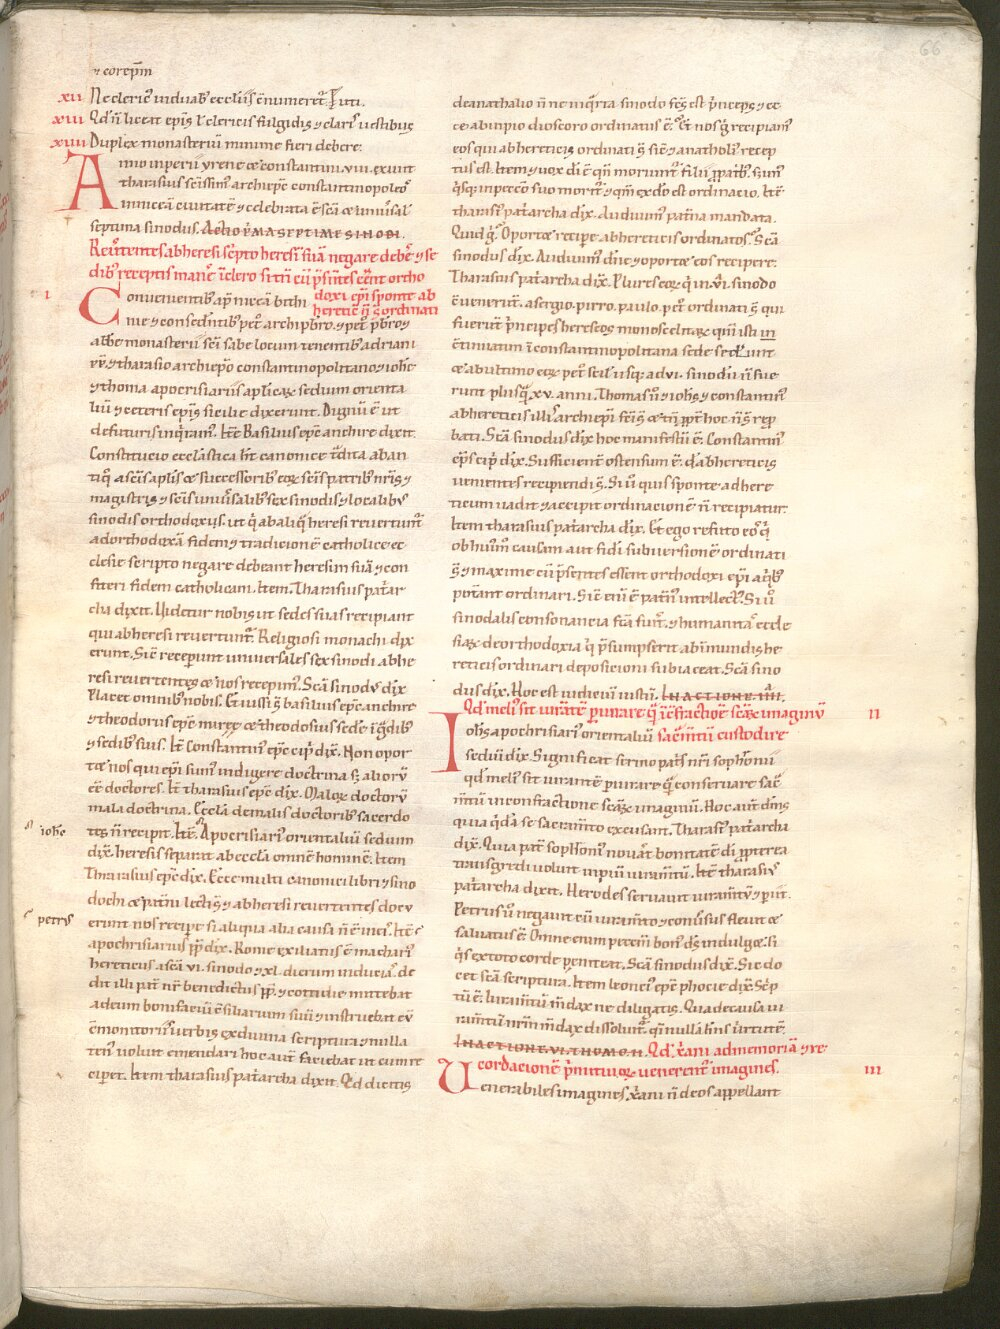 66
⁊ corep̄m
xii Ne cleric᷒ in duab᷒ eccl̄iis c̄numeret᷑. Finit.
xiii Qd n̄ liceat ep̄is ł clericis fulgidis ⁊ claris uestibus
xiiii Duplex monasteriū minime fieri debere.
Anno inperii yrene ⁊ constantini. viii. exiunt
tharasius sc̄issim᷒ archiep̄c constantinopoleos
in niceā ciuitatē ⁊ celebrata ē sc̄a ⁊ uniu᷑sal᷒
septima sinodus. ACTIO P̄MA SEPTIME SINODI.
Reu᷑tentes ab heresi sc̄pto heresī suā negare debēt ⁊ se
dib᷒ receptis manē ī clero si tn̄ cū p̄sentes eēnt ortho
doxi ep̄i sponte ab
hereticis n̄ s̄ ordinati
i
Conuenientib᷒ ap᷒ niceā bithi
nie ⁊ consedentib᷒ pet᷒ archip̄bro ⁊ pet᷒ p̄bro ⁊
abbe monasterii sc̄i sabe locum tenentib᷒ adriani
pp̄ ⁊ tharasio archiep̄o constantinopolitano ⁊ ioh̄e
⁊ thoma apocrisiariis ap̄licaꝝ sedium orienta
liū ⁊ ceteris ep̄is sicilie dixerunt. Dignū ē ut
defuturis inq̇ram᷒. Itē Basilius ep̄c anchire dixit.
Constitucio eccl̄astica h̄t canonice t̄dita ab an
tiq᷒ a sc̄is ap̄lis ⁊ successorib᷒ eoꝝ sc̄is patrib᷒ n̄ris ⁊
magistris ⁊ sc̄is uniu᷑salib᷒ sex sinodis ⁊ localib᷒
sinodis orthodoxis. ut q̇ ab aliq̇ heresi reuertunt᷑
ad orthodoxā fidem ⁊ tradicionē catholice ec
clesie scripto negare debeant heresim suā ⁊ con
fiteri fidem catholicam. Item. Tharasius pat᷑ar
cha dixit. Uidetur nobis ut sedes suas recipiant
qui ab heresi reuertunt᷑. Religiosi monachi dix
erunt. Sic̄ receperunt uniuersales sex sinodi ab he
resi reuertentes ⁊ nos recepim᷒. Sc̄a sinod᷒ dix̄
Placet omnib᷒ nobis. Et iussi s̄ basilius ep̄c anchire
⁊ theodorus ep̄c mareę ⁊ theodosius sedē ī g̃dib᷒
⁊ sedib᷒ suis. Itē Constantin᷒ ep̄c cip̄ dix̄. Non opor
tet nos qui ep̄i sum᷒ indigere doctrina s; aliorū
eē doctores. Itē tharasius ep̄c dix̄. Maloꝝ doctorū
mala doctrina. Eccl̄a de malis doctorib᷒ sacerdo
tes n̄ recipit. Itē Apocrisiari᷒ orientaliū sedium
ioh̄e
dix̄. heresis separat ab eccl̄a omnē hominē. Item
Tharasius ep̄c dix̄. Ecce multi canonici libri ⁊ sino
dochi ⁊ pat᷑ni lectis ⁊ ab heresi reuertentes docu
petr᷒
erunt nos recipe si aliqua alia causa n̄ ē in eis. Itē
apochrisiarius pp̄ dix̄. Rome exiliatus ē machari᷒
hereticus a sc̄a vi. sinodo ⁊ xl. dierum inducias de
dit illi pat᷑ n̄r benedictus pp̄ ⁊ cottidie mittebat
ad eum bonifaciū c̄siliarium suū ⁊ instruebat eū
c̄monitoriis uerbis ex diuina scriptura ⁊ nulla
ten᷒ uoluit emendari hoc aut̄ faciebat ut eum re
ciperet. Item tharasius pat᷑archa dixit. Qd dicitis
de anatholio n̄ne in q̇rta sinodo sc̄s est p̄nceps ⁊ ec
ce ab inpio dioscoro ordinatus ē. Et nos g̊ recipiam᷒
eos qui ab hereticis ordinati s̄ sic̄ ⁊ anatholi᷒ recep
tus est. Item ⁊ uox dī ē qn̄ moriunt᷑ filii ꝓ patrib᷒. s; un᷒
q̇sq; in peccō suo morit᷑ ⁊ qm̄ ex dō est ordinacio. Itē
tharasi᷒ pat᷑archa dix̄. Audiuim᷒ pat᷑na mandata.
Quid g̊. Oportet recipe ab hereticis ordinatos. Sc̄a
sinodus dix̄. Audiuim᷒ dn̄e ⁊ oportet eos recipere.
Tharasius pat᷑archa dix̄. Plures eoꝝ q̇ in. vi. sinodo
c̄uenerūt. a sergio. pirro. paulo. pet᷒ ordinati s̄ qui
fuerūt p̄ncipes hereseos monoscelitaꝝ qm̄ ista in
c̄tinuatim ī constantinopolitana sede sederunt
⁊ ab ultimo eoꝝ pet᷒ scil᷑ usq; ad vi. sinodū n̄ fue
runt plusq̇̄. xv. anni. Thomas ū ⁊ ioh̄s ⁊ constantin᷒
ab hereticis illis archiep̄i sc̄i s̄ ⁊ tn̄ ꝓpt̄ hoc n̄ s̄ rep̄
bati. Sc̄a sinodus dix̄ hoc manifestū ē. Constantin᷒
ep̄c cip̄ dix̄. Sufficient᷑ ostensum ē. qd ab hereticis
uenientes recipiendi s̄. Si ū quis sponte ad here
ticum uadit ⁊ accipit ordinacionē n̄ recipiatur.
Item tharasius pat᷑archa dix̄. Et ego refuto eos q̇
ob humanā causam aut fidei subuersionē ordinati
s̄ ⁊ maxime cū p̄sentes essent orthodoxi ep̄i a q̇b᷒
pot᷑ant ordinari. Sic̄ eni ē patrū intellect᷒. Si ū
sinodalis consonancia fc̄a fu᷑it. ⁊ humanitas eccle
siaꝝ de orthodoxia q̇ p̄sumpserit ab inmundis he
reticis ordinari deposicioni subiaceat. Sc̄a sino
dus dix̄. Hoc est iudiciū iustū. IN ACTIONE. IIII.
Qd meli᷒ sit iuram̄tē p᷑iurare q̄ ī c̄fractione scāꝝ imaginū
ii
Ioh̄s apochrisiari᷒ orientaliū sac̄m̄tū custodire
sediū dix̄. Significat sermo pat᷑s n̄ri sophronii
qd meli᷒ sit iurantē p᷑iurare q̄ conseruare sac̄
m̄tū in confractione scāꝝ imaginū. Hoc aut̄ dicim᷒
quia q̇dā se sacram̄to excusant. Tharasi᷒ pat᷑archa
dix̄. Quia pat᷑ sophroni᷒ nouat bonitatē dī ꝓpterea
transgredi uoluit inpiū iuram̄tū. Itē tharasi᷒
pat᷑archa dixit. Herodes seruauit iuram̄tū ⁊ p᷑iit.
Petrus ū negauit cū iuram̄to ⁊ conu᷑sus fleuit ⁊
saluatus ē. Omne enim peccm̄ bon᷒ ds̄ indulget. si
q̇s ex toto corde peniteat. Sc̄a sinodus dix̄. Sic do
cet sc̄a scriptura. Item leonci᷒ ep̄c phocie dix̄. Sc̄p
tū ē. Iuram̄tū m̄dax ne diligatis. Qua de causa iu
ram̄tū n̄rm m̄dax dissoluit᷑. qn̄ nullā h̄ns u᷑tutē.
IN ACTIONE. VI. THOMO. II. Qd x̄ani ad memoriā ⁊ re
cordacionē p̄mitiuoꝝ uenerent᷑ imagines.
iii
Uenerabiles imagines. x̄ani n̄ deos appellant